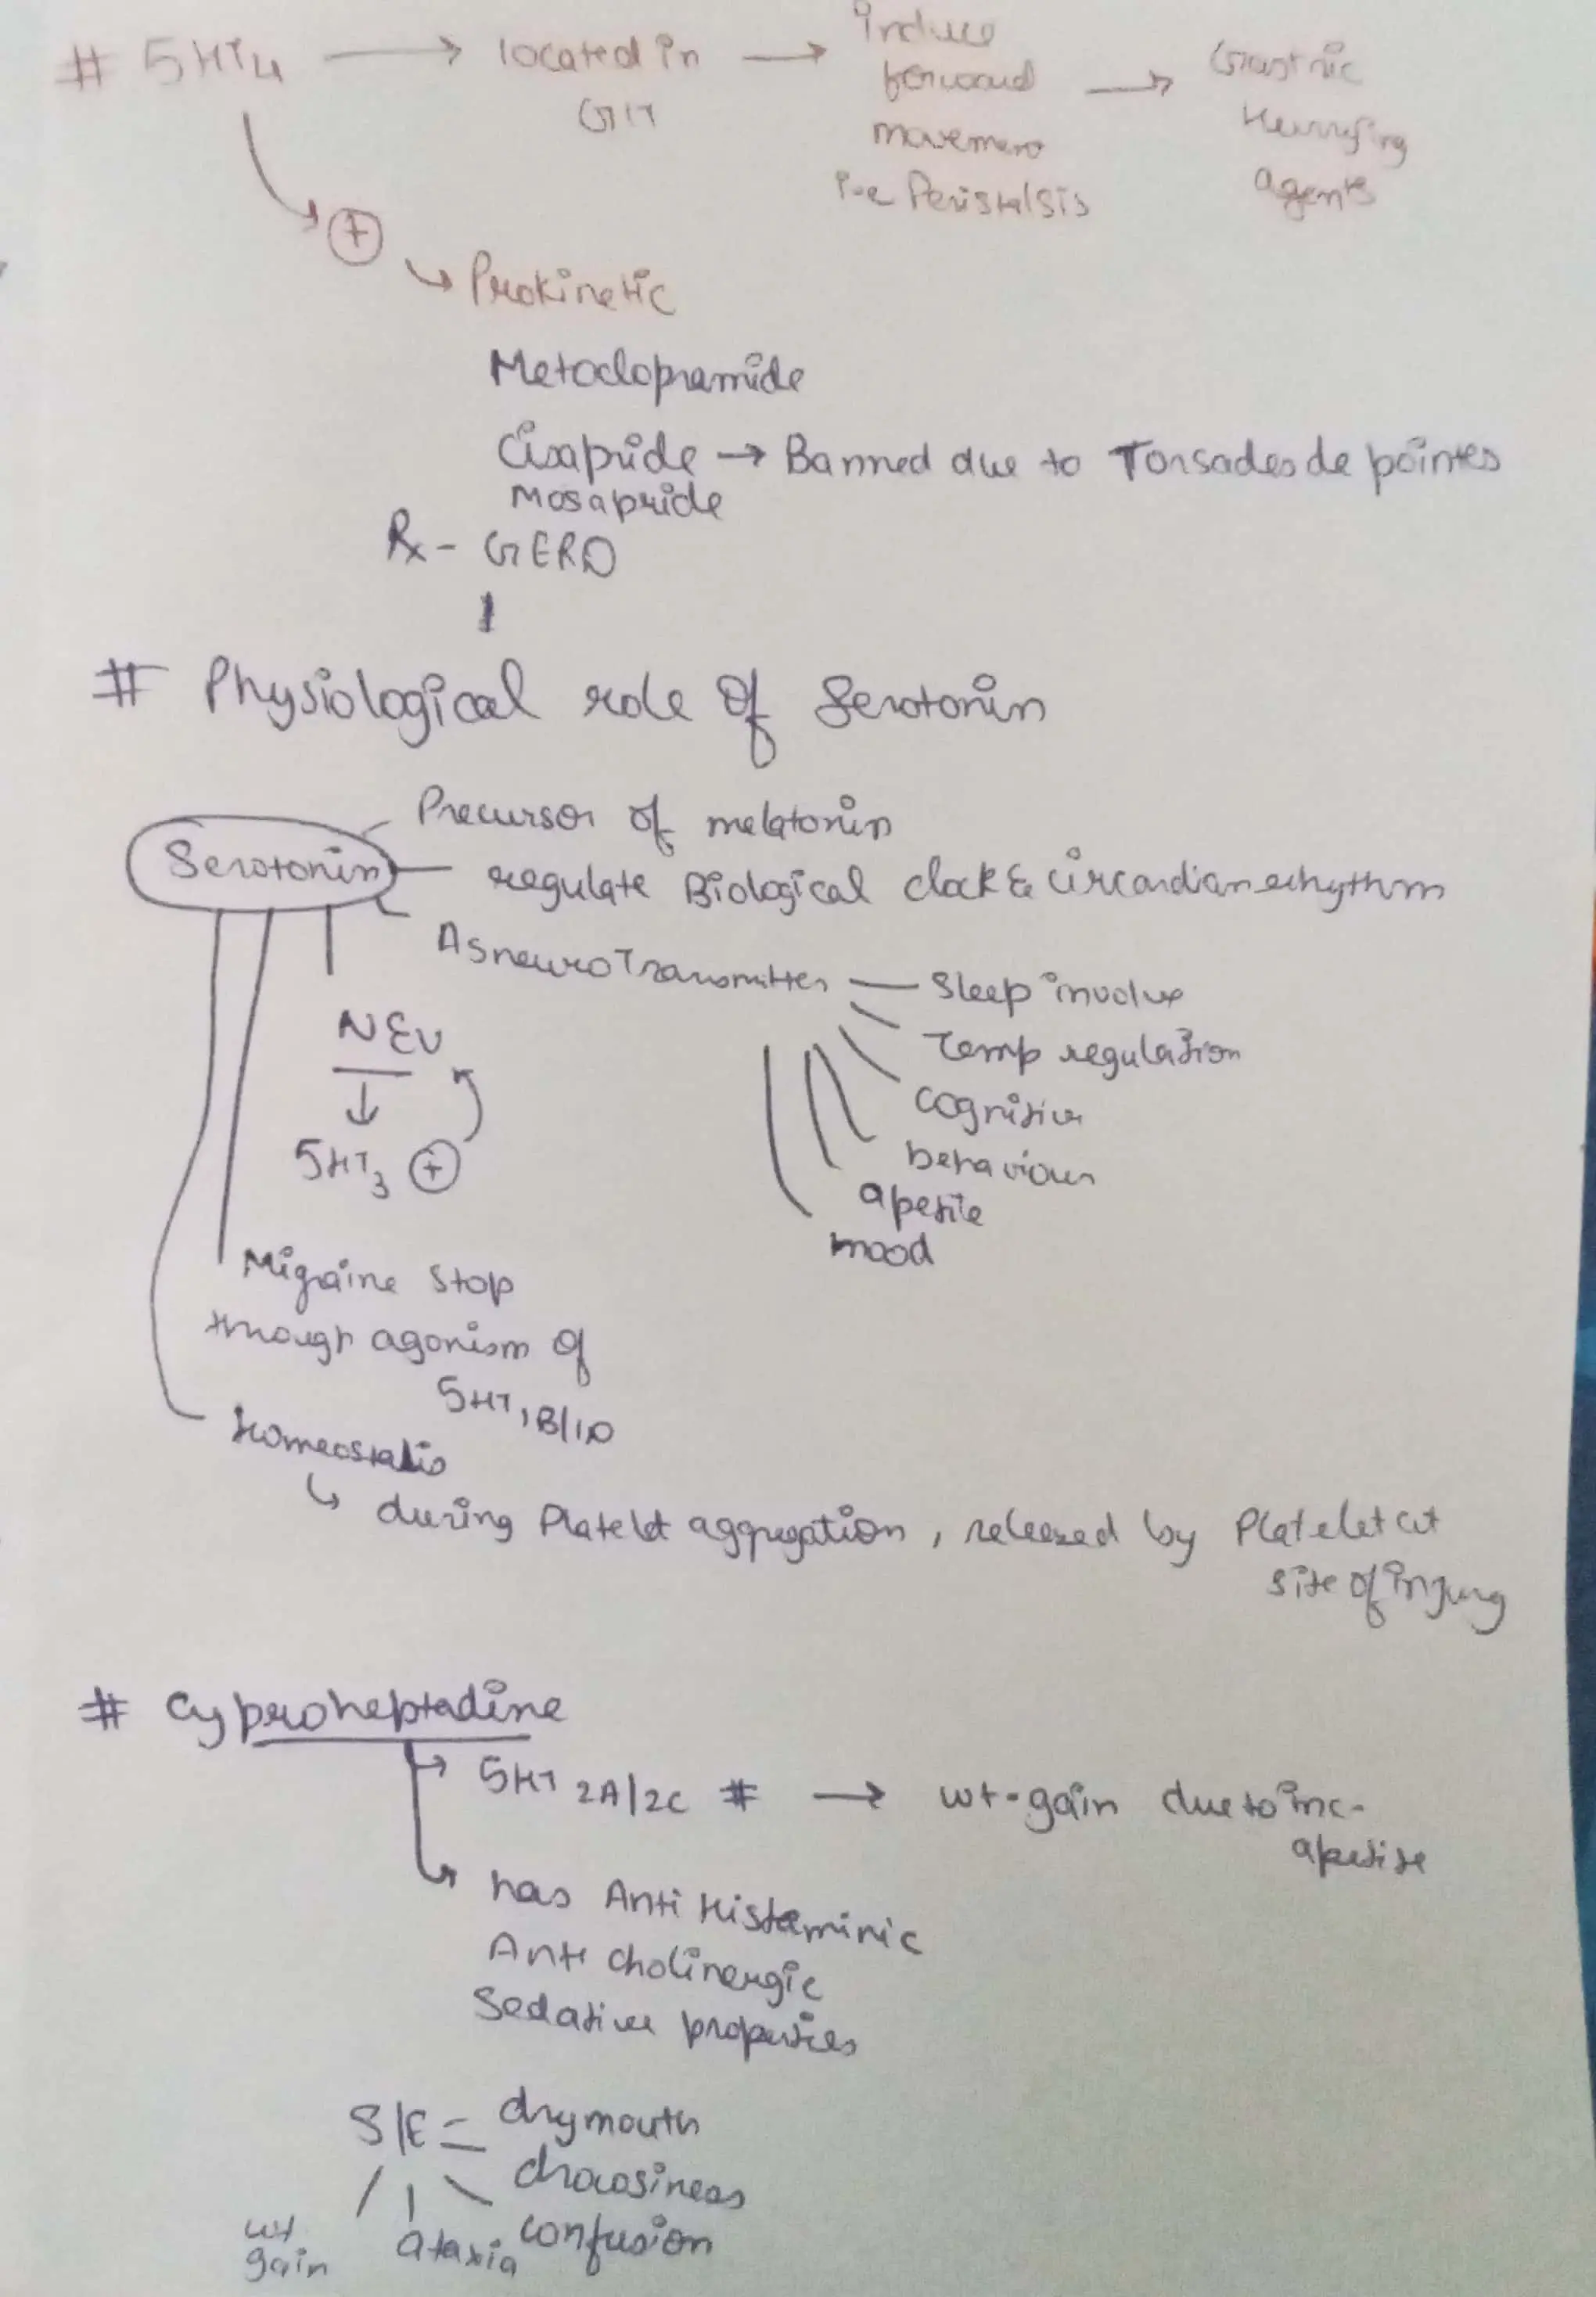 # 5HT4 → located in GIT → induce forward movement i.e Peristalsis → Gastric Hurrying agents
⊕
↳ Prokinetic
Metoclopramide
Cisapride → Banned due to Torsades de pointes
Mosapride
Rx - GERD
# Physiological role of Serotonin
Serotonin
Precursor of melatonin
regulate Biological clock & circardian rhythm
As neuro Transmitter — Sleep involve
Temp regulation
cognitive
behaviour
apetite
mood
N&V
↓
5HT3 ⊕
Migraine stop
through agonism of
5HT1B/1D
Homeostatis
↳ during Platelet aggregation, released by Platelet at
site of injury
# Cyproheptadine
→ 5HT 2A/2C # → wt-gain due to inc-
apetite
has Anti Histaminic
Anti cholinergic
Sedative properties
S/E = dry mouth
drowsiness
confusion
ataxia
wt
gain